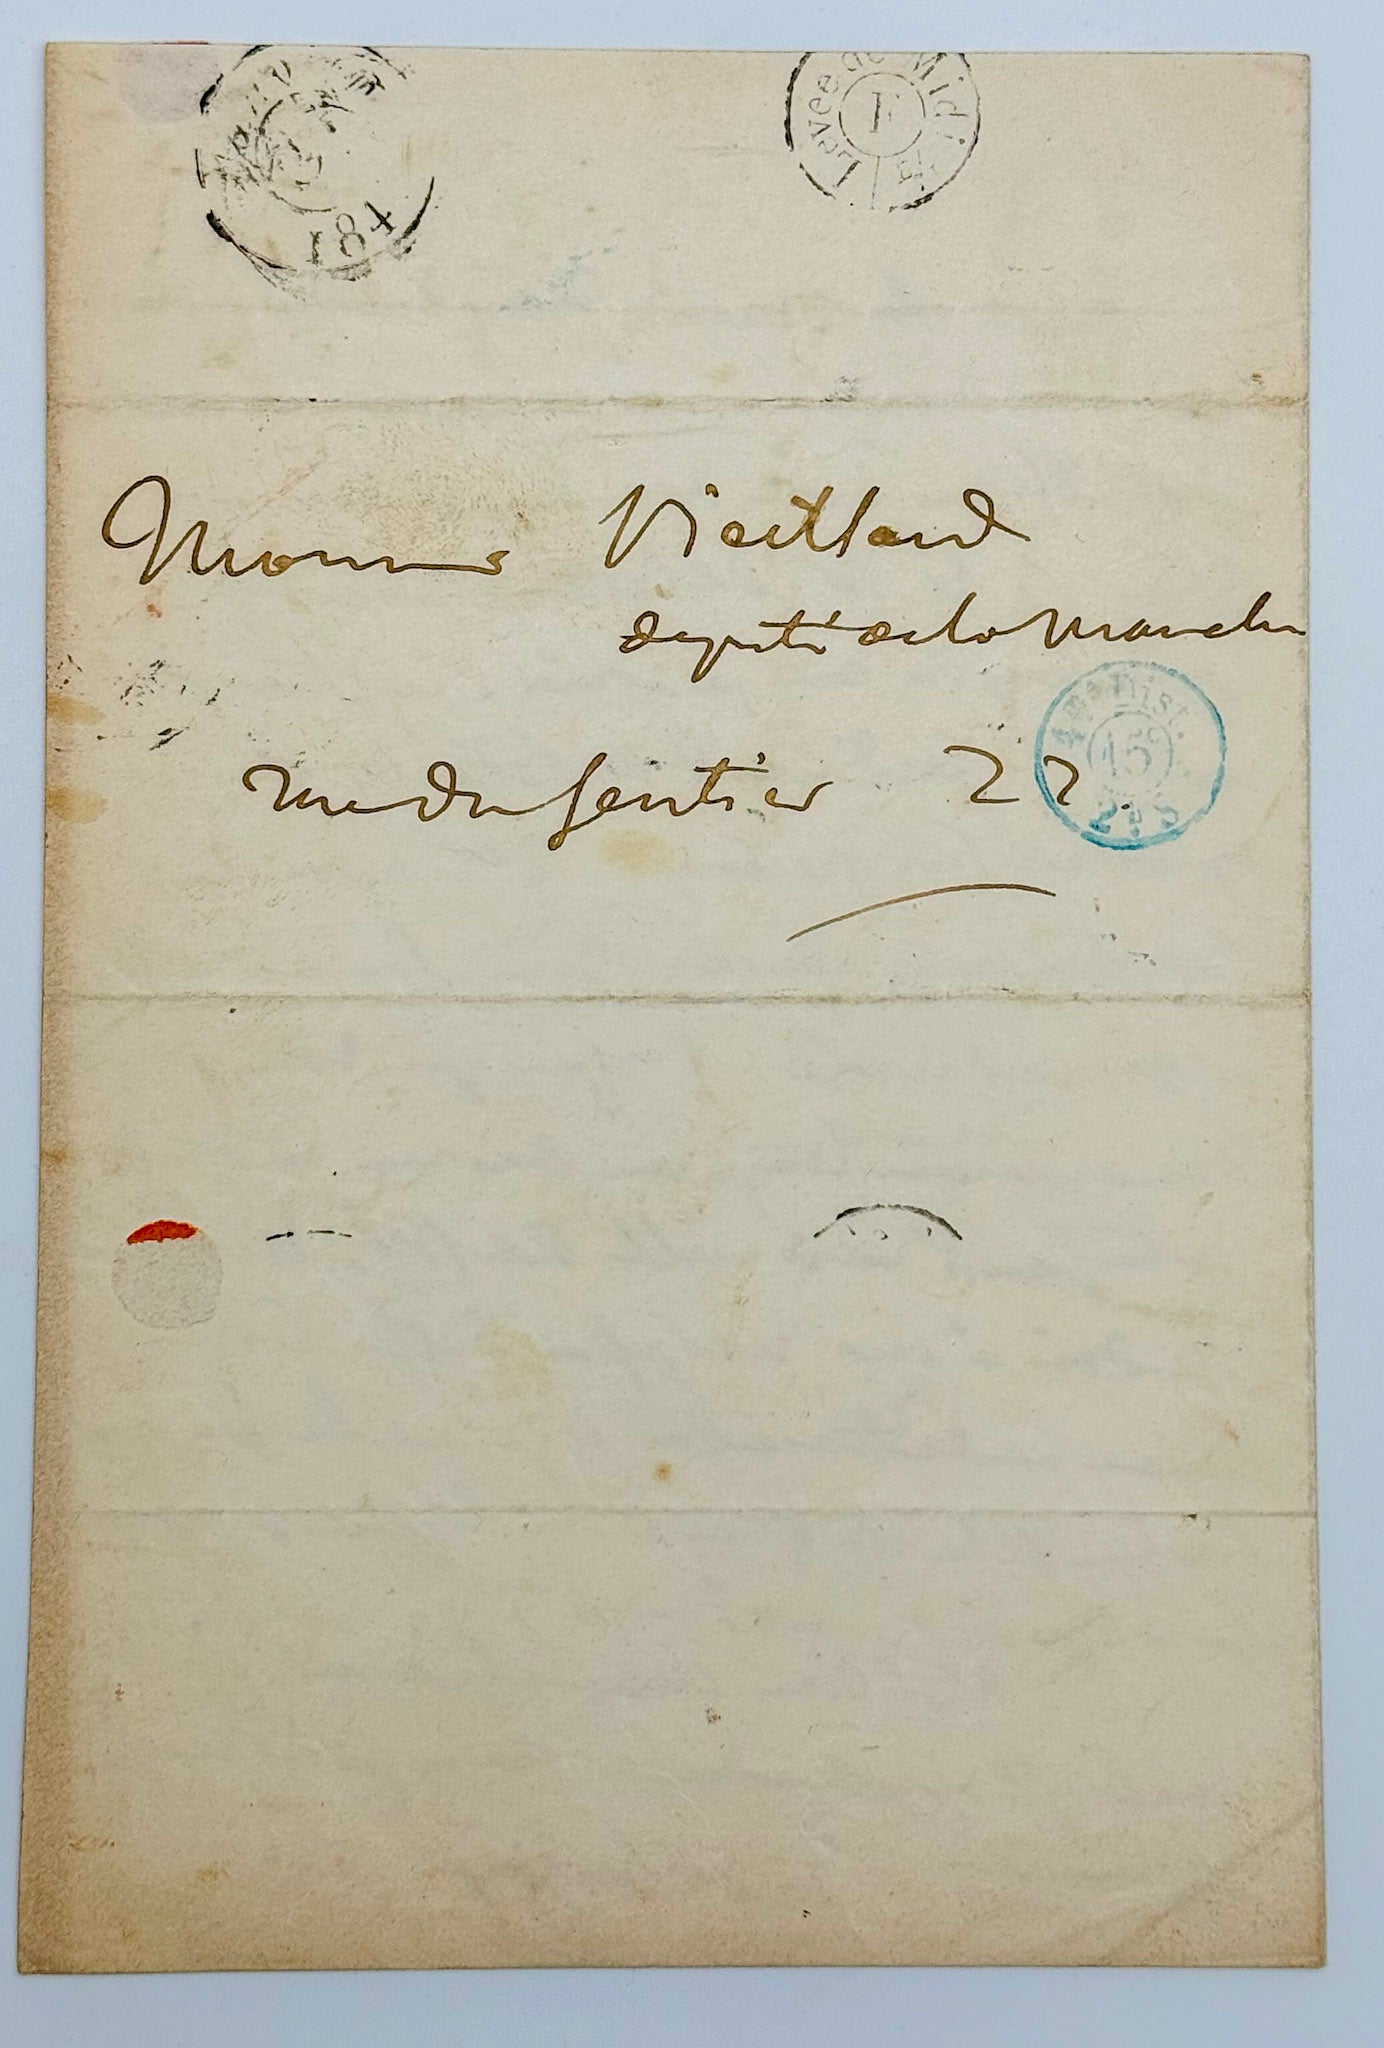 184
Levee de Midi
F
Monsieur Vieillard
député de la Manche
rue du Sentier 22
4me Dist.
15